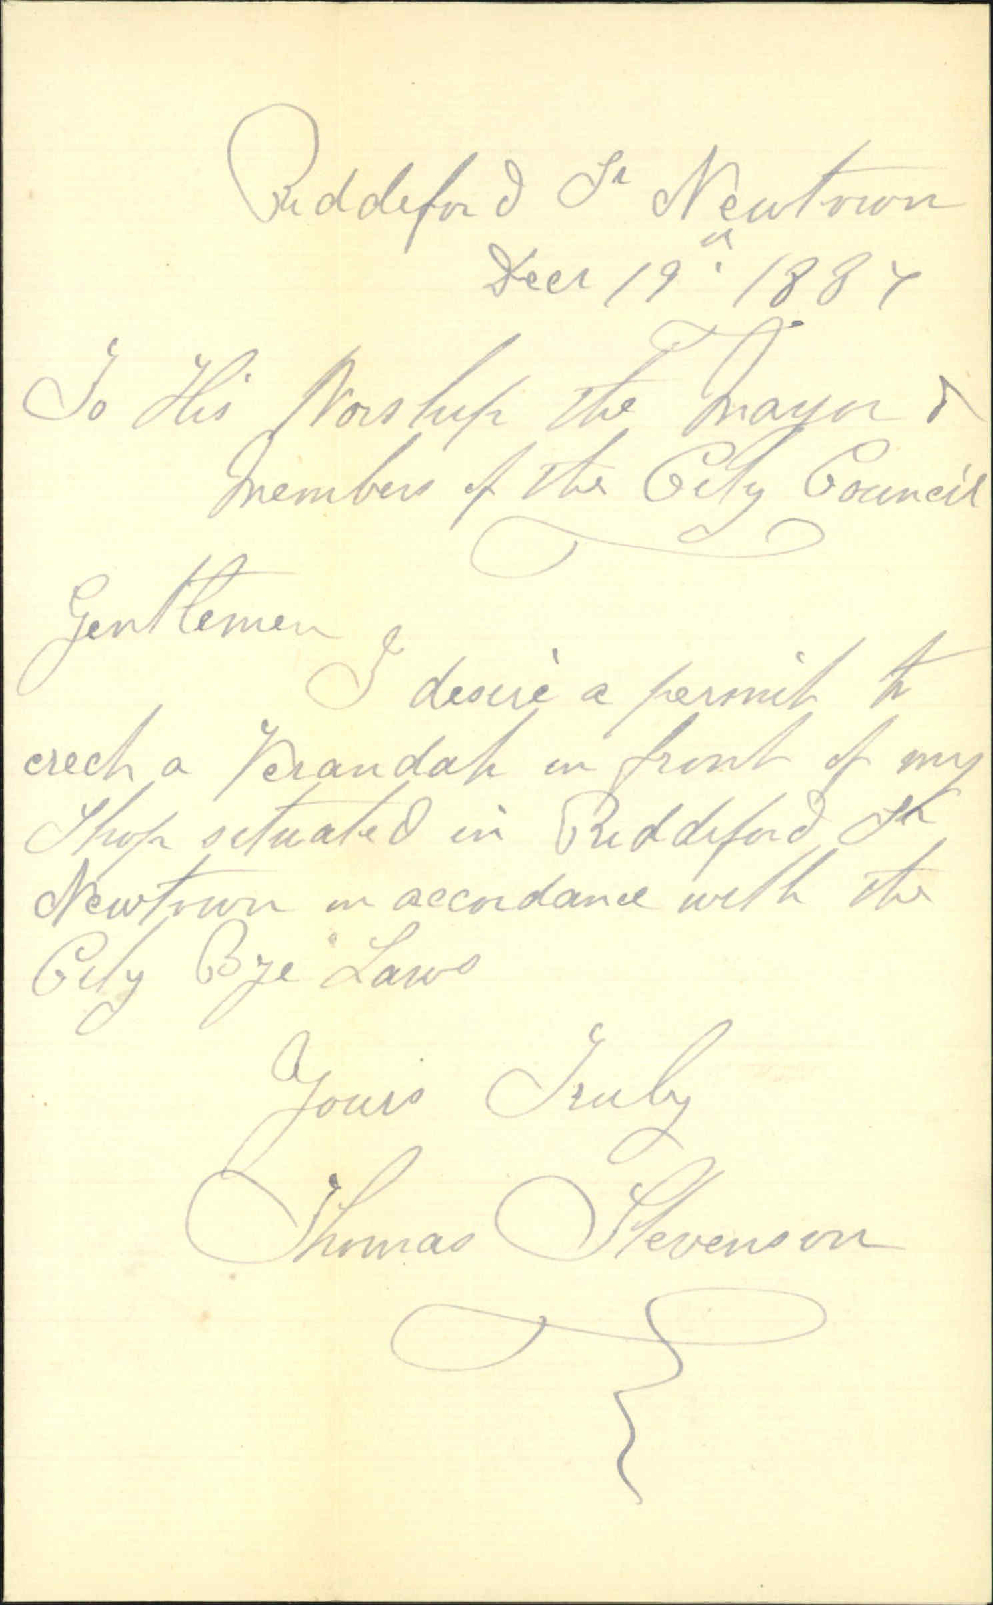 Riddeford St Newtown
Decr 19th 1887
To His Worship the Mayor &
Members of the City Council
Gentlemen
I desire a permit to
erect a Verandah in front of my
Shop situated in Riddeford St
Newtown in accordance with the
City Bye Laws
Yours Truly
Thomas Stevenson